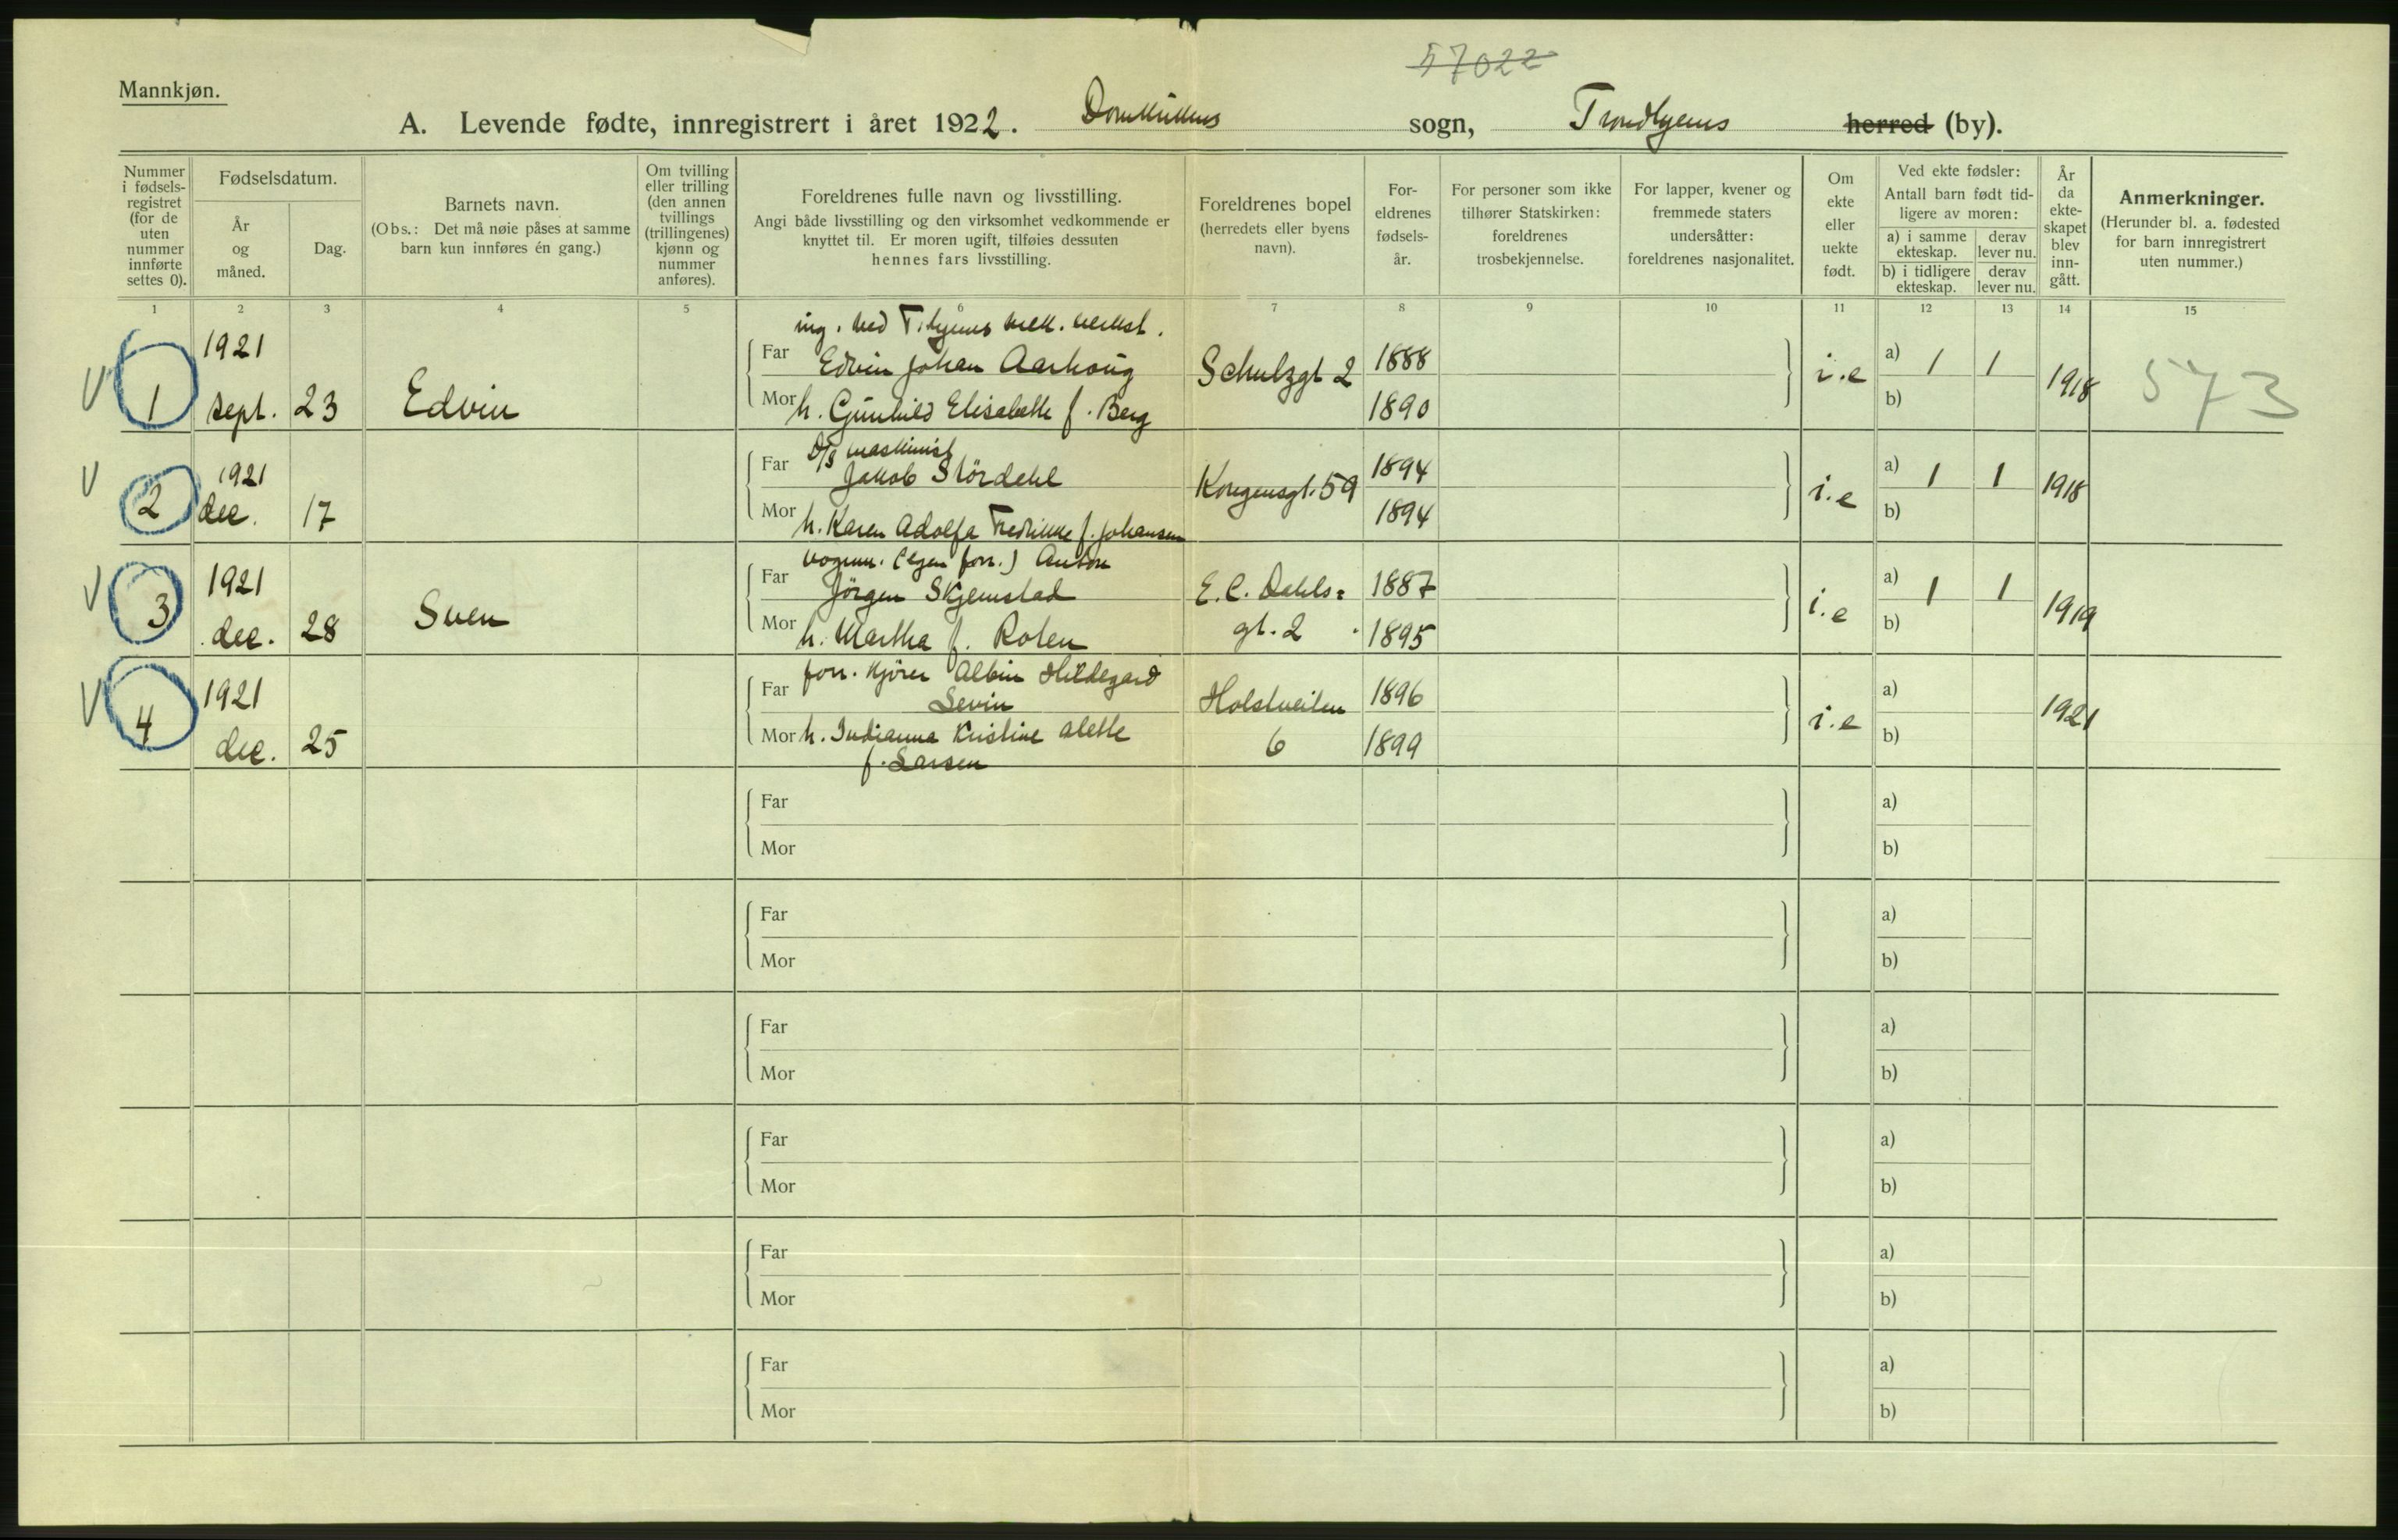 57022
Mannkjøn.
A. Levende fødte, innregistrert i året 1922. Domkirkens sogn, Trondhjems herred (by).
Nummer i fødsels-registret (for de uten nummer innførte settes 0).
Fødselsdatum.
År og måned.
Dag.
Barnets navn.
(Obs.: Det må nøie påses at samme barn kun innføres én gang.)
Om tvilling eller trilling (den annen tvillings (trillingenes) kjønn og nummer anføres).
Foreldrenes fulle navn og livsstilling.
Angi både livsstilling og den virksomhet vedkommende er knyttet til. Er moren ugift, tilføies dessuten hennes fars livsstilling.
Foreldrenes bopel (herredets eller byens navn).
For-eldrenes fødsels-år.
For personer som ikke tilhører Statskirken: foreldrenes trosbekjennelse.
For lapper, kvener og fremmede staters undersåtter: foreldrenes nasjonalitet.
Om ekte eller uekte født.
Ved ekte fødsler:
Antall barn født tid-ligere av moren:
a) i samme ekteskap. derav lever nu.
b) i tidligere ekteskap. derav lever nu.
År da ekte-skapet blev inn-gått.
Anmerkninger.
(Herunder bl. a. fødested for barn innregistrert uten nummer.)
1 2 3 4 5 6 7 8 9 10 11 12 13 14 15
V 1 1921 sept. 23 Edvin
ing. ved T.hjems mek. verkst.
Far Edvin Johan Aarhoug Schulzgt 2 1888 i.e a) 1 1 1918 573
Mor h. Gunhild Elisabeth f. Berg 1890 b)
V 2 1921 dec. 17
D/S maskinist
Far Jakob Stördahl Kongensgt. 59 1894 i.e a) 1 1 1918
Mor h. Karen Adolfa Fredrikke f. Johansen 1894 b)
V 3 1921 dec. 28 Sven
vognm. (egen forr.) Anton
Far Jörgen Skjemstad E. C. Dahls= 1887 i.e a) 1 1 1919
Mor h. Martha f. Roten gt. 2 1895 b)
V 4 1921 dec. 25
forr. kjörer Albin Hildegard
Far Levin Holstveiten 1896 i.e a) 1921
Mor h. Indianna Kristine Alette 6 1899 b)
f. Larsen
Far a)
Mor b)
Far a)
Mor b)
Far a)
Mor b)
Far a)
Mor b)
Far a)
Mor b)
Far a)
Mor b)